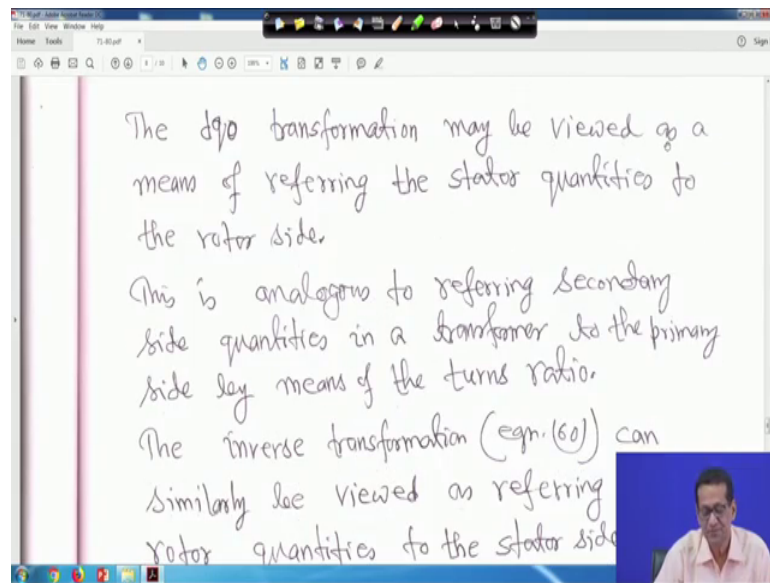 71-80.pdf - Adobe Acrobat Reader DC
File Edit View Window Help
Home Tools 71-80.pdf × Sign
The dq0 transformation may be viewed as a
means of referring the stator quantities to
the rotor side.
This is analogous to referring secondary
side quantities in a transformer to the primary
side by means of the turns ratio.
The inverse transformation (eqn. (60)) can
similarly be viewed as referring
rotor quantities to the stator side